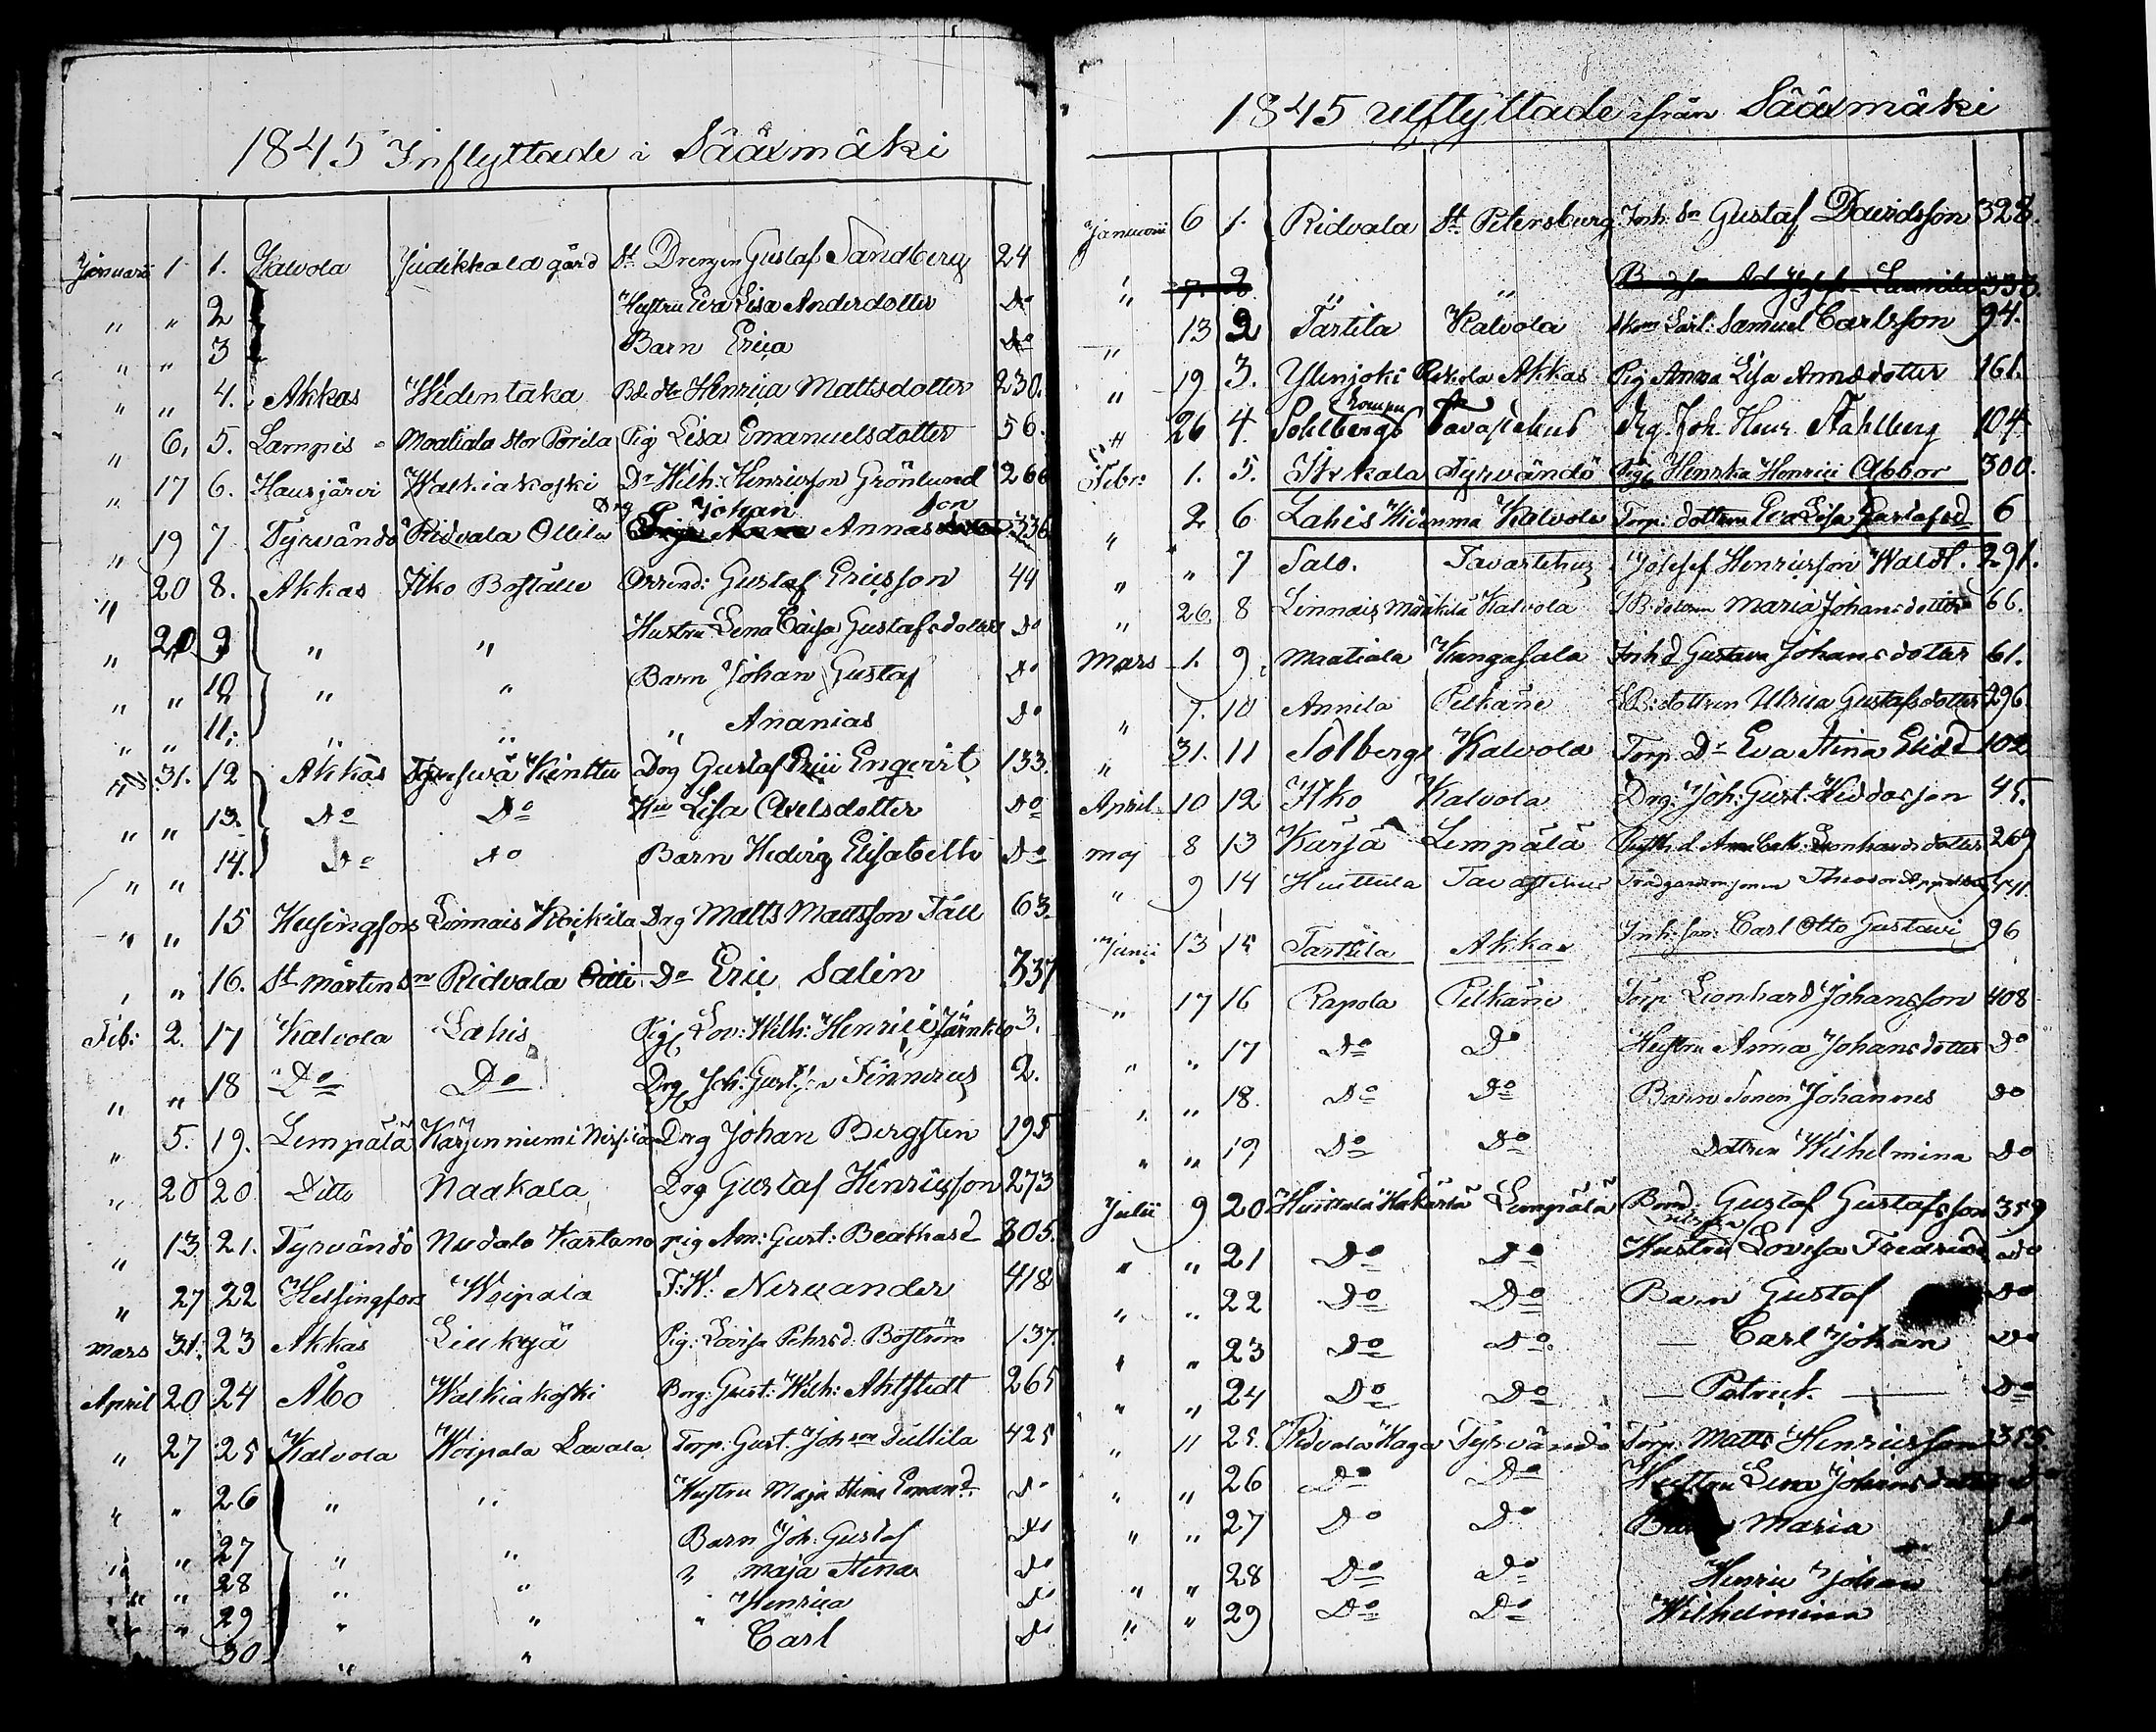 1845 Inflyttade i Sääxmäki
Januarii 1 1. Kalvola Judikkala gård St Drengen Gustaf Sandberg 24
" " 2 Hustru Eva Lisa Andersdotter Do
" " 3 Barn Erica Do
" " 4. Akkas Widentaka Bde dtr Henrica Mattsdotter 230.
" 6, 5. Lampis Maatiala Stor Porila Pig Lisa Emanuelsdotter 56.
" 17 6. Hausjärvi Walkiakoski Dr Wilh: Henricsson Grönlund 266
Drg Johan son
" 19 7 Tyrvändö Ridvala Ollila Annas 336
" 20 8. Akkas Ilko Boställe Arrend: Gustaf Ericsson 44
" 20 9 " " Hustru Lena Caisa Gustafsdotter Do
" " 10 " " Barn Johan Gustaf Do
" " 11. " " " Ananias Do
" 31. 12 Akkas Kinttu Drg Gustaf Engqvist 133.
" " 13. Do Do Hu Lisa Axelsdotter Do
" " 14. Do Do Barn Hedvig Elisabeth Do
" " 15 Helsingfors Linnais Drg Matts Mattsson Fäll 63.
" " 16. St Mårtens Ridvala Do Eric Salin 337
Feb: 2. 17 Kalvola Lahis Pig Lov: Wilh: Henrici 3.
" " 18 Do Do Drg Joh: Gust: Finnerus 2.
" 5. 19. Lempälä Karjenniemi Drg Johan Bergsten 195
" 20 20 Ditto Naakala Drg Gustaf Henricsson 273
" 13. 21. Tyrvändö Uudala Kartano pig Ann: Gust: Beathasd 305.
" 27 22 Helsingfors Woipala F: W: Nervander 418
Mars 31. 23 Akkas Liukyä Pig: Lovisa Pehrsd. Boström 137.
April 20 24 Åbo Walkiakoski Borg: Gust: Wilh: Ahlstedt 265
" 27 25 Kalvola Woipala Lavala Torp. Gust. Johson 425
" " 26 " " Hustru Maja Stina Emand. Do
" " 27 " " Barn Joh: Gustaf Do
" " 28 " " " Maja Stina Do
" " 29 " " " Henrica Do
30 " " Carl Do
1845 utflyttade ifrån Sääxmäki
Januarii 6 1. Ridvala St. Petersburg Inh: Sn Gustaf Davidsson 328.
" 7. 2 " " 333.
" 13 2 Tarttila Kalvola Skom Lärl: Samuel Carlsson 94.
" 19 3. Ylenjoki Akkas Pig Anna Lisa Annasdotter 161.
" 26 4 Sohlbergs Tavastehus Drg. Joh. Henr. Stahlberg 104
Febr: 1. 5. Tyrvändö Pig Henrika Henrici Abbor 300.
" 2 6 Lahis Kalvola Torp: dottren Eva Lisa Gustafsd 6
" " 7 Salo. Tavastehus Josef Henricsson Waldt. 291.
" 26. 8 Linnais Kalvola dottren Maria Johansdotter 66.
Mars 1. 9. Maatiala Kangasala Inh d Gustava Johansdotter 61.
" 7. 10 Annila Pelkäne dottren Ulrica Gustafsdotter 296
" 31. 11 Solbergs Kalvola Torp. Dr Eva Stina Elisd 102
April 10 12 Ilko Kalvola Drg: Joh: Gust: 45.
Maj 8 13 Karjä Lempälä Rusth. d. Anna Cath: Leonhardsdotter 269
" 9 14 Huittula Tavastehus Theodor 441.
Junii 13 15 Tarttila Akkas Inh: son: Carl Otto Gustavi 96
" 17 16 Rapola Pelkäne Torp Leonhard Johansson 408
" " 17 Do Do Hustru Anna Johansdotter Do
" " 18. Do Do Barn Sonen Johannes Do
" " 19 Do Do Dottren Wilhelmina Do
Julii 9 20 Lempälä Bond. Gustaf Gustafsson 359
" " 21 Do Do Hustru Lovisa Fredricsd Do
" " 22 Do Do Barn Gustaf Do
" " 23 Do Do — Carl Johan Do
" " 24 Do Do — Patrick — Do
" 11 25. Ridvala Haga Tyrvändö Torp. Matts Henricsson 355.
" " 26 Do Do Hustru Lena Johansdotter Do
" " 27 Do Do Barn Maria Do
" " 28 Do Do Henric Johan Do
" " 29 Do Do Wilhelmina